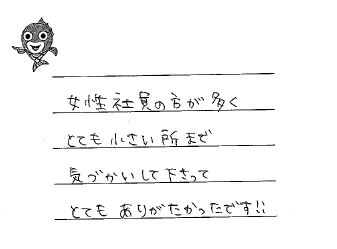 女性社員の方が多く
とても小さい所まで
気づかいして下さって
とても ありがたかったです!!